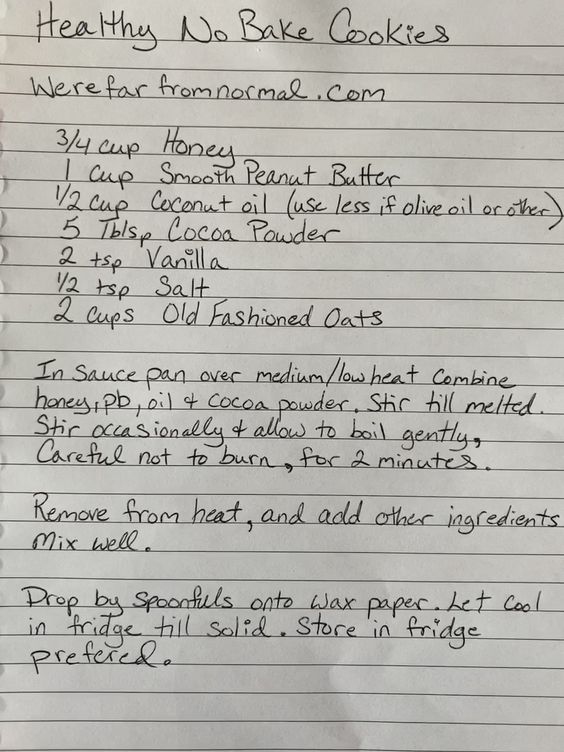 Healthy No Bake Cookies
Werefarfromnormal.com
3/4 cup Honey
1 cup Smooth Peanut Butter
1/2 cup Coconut oil (use less if olive oil or other)
5 Tblsp Cocoa Powder
2 tsp Vanilla
1/2 tsp Salt
2 cups Old Fashioned Oats
In Sauce pan over medium/low heat Combine
honey, pb, oil & cocoa powder. Stir till melted.
Stir occasionally & allow to boil gently,
Careful not to burn, for 2 minutes.
Remove from heat, and add other ingredients
Mix well.
Drop by Spoonfuls onto Wax paper. Let Cool
in fridge till Solid. Store in fridge
prefered.